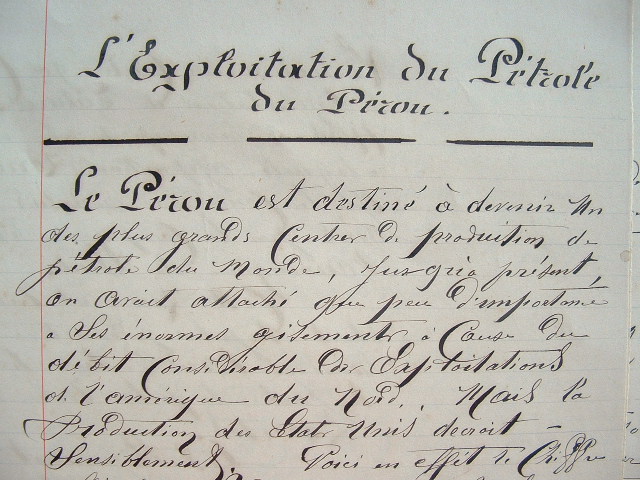 L'Exploitation du Pétrole
du Pérou.
Le Pérou est destiné à devenir un
des plus grands Centres de production de
pétrole du Monde, Jusqu'à présent,
on avait attaché que peu d'importance
a Ses énormes gisements à Cause du
débit Considérable des Exploitations
de l'amérique du Nord. Mais la
Production des Etats Unis decroit
Sensiblement. Voici en effet le Chiffre